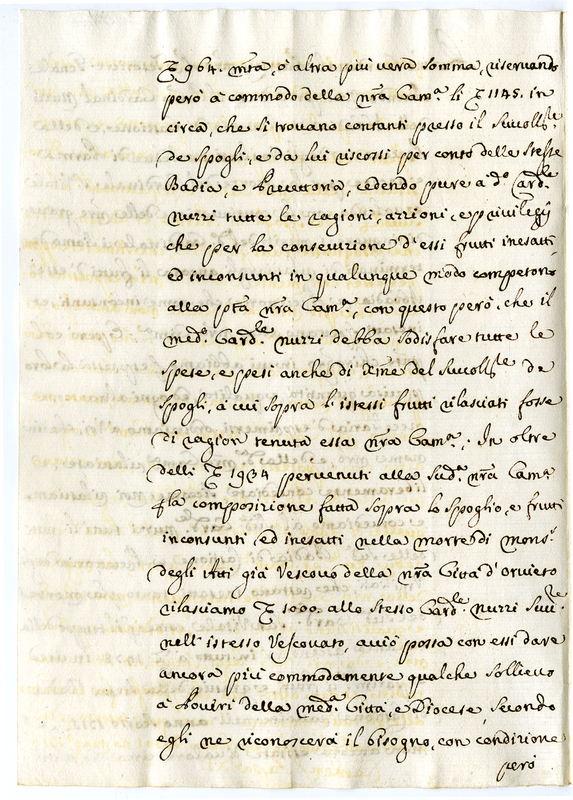 964. mta, ò altra più vera somma, riservando
però à commodo della nrã Cam.ª li 1145. in
circa, che si trovano contanti presso il Succoll.re
de Spogli, e da lui riscossi per conto delle stesse
Badia, e Precettoria, cedendo pure a d.º Card.le
Nuzzi tutte le ragioni, azzioni, e privileggij
che per la consecuzione d'essi frutti inesatti,
ed inconsunti in qualunque modo competono
alla ptã nrã Cam.ª, con questo però, che il
med.º Card.le Nuzzi debba sodisfare tutte le
spese, e pesi anche di Xme del Succoll.re de
Spogli, à cui sopra l'istessi frutti rilasciati fosse
di ragion tenuta essa nrã Cam.ª: In oltre
delli 1934 pervenuti alla sud.ª nrã Cam.ª
p la composizione fatta sopra lo Spoglio, e frutti
inconsunti, ed inesatti nella morte di Mons.r
degli Atti già Vescovo della nrã Città d'Orvieto
rilasciamo 1000. allo stesso Card.le Nuzzi
nell'istesso Vescovato, acciò possa con essi dare
ancora più commodamente qualche sollievo
à Poveri della med.ª Città, e Diocese, secondo
egli ne riconoscerà il bisogno, con condizione
però